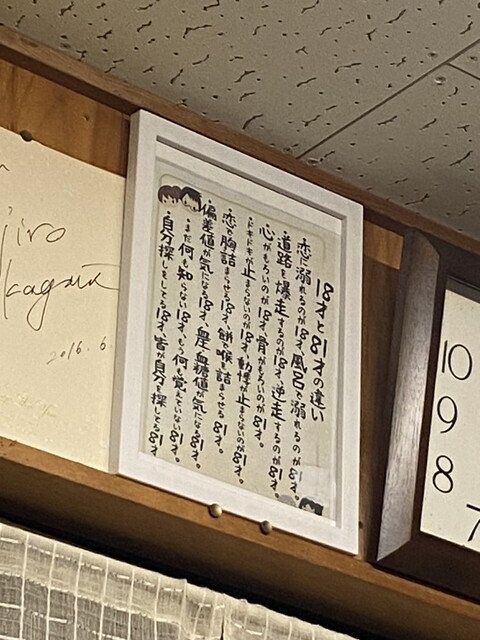 18才と81才の違い
恋に溺れるのが18才、風呂で溺れるのが81才。
道路を爆走するのが18才、逆走するのが81才。
心がもろいのが18才、骨がもろいのが81才。
ドキドキ止まらないのが18才、動悸が止まらないのが81才。
恋で胸詰まらせる18才、餅で喉詰まらせる81才。
偏差値が気になる18才、血糖値が気になる81才。
まだ何も知らない18才、もう何も覚えていない81才。
自分探しをしてる18才、皆が自分を探してる81才。
2016.6.
10
9
8
7